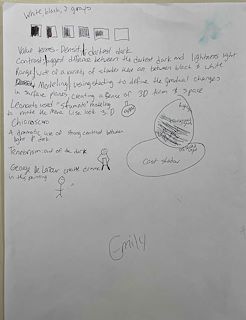 White, black, 3 grays
Value terms - Density / darkest dark
Contrast / biggest difference between the darkest dark and lightness light
Range / use of a variety of shades here on between black & white
Modeling / using shading to define the gradual changes
in surface planes, creating a sense of 3D form & space
Leonardo used "sfumato" modeling
to make the Mona Lisa look 3-D
Chiaroscuro
A dramatic use of strong contrast between
light & dark
Tenebrism: out of the dark
George De Latour create drama
in the painting
light
Cast shadow
Emily